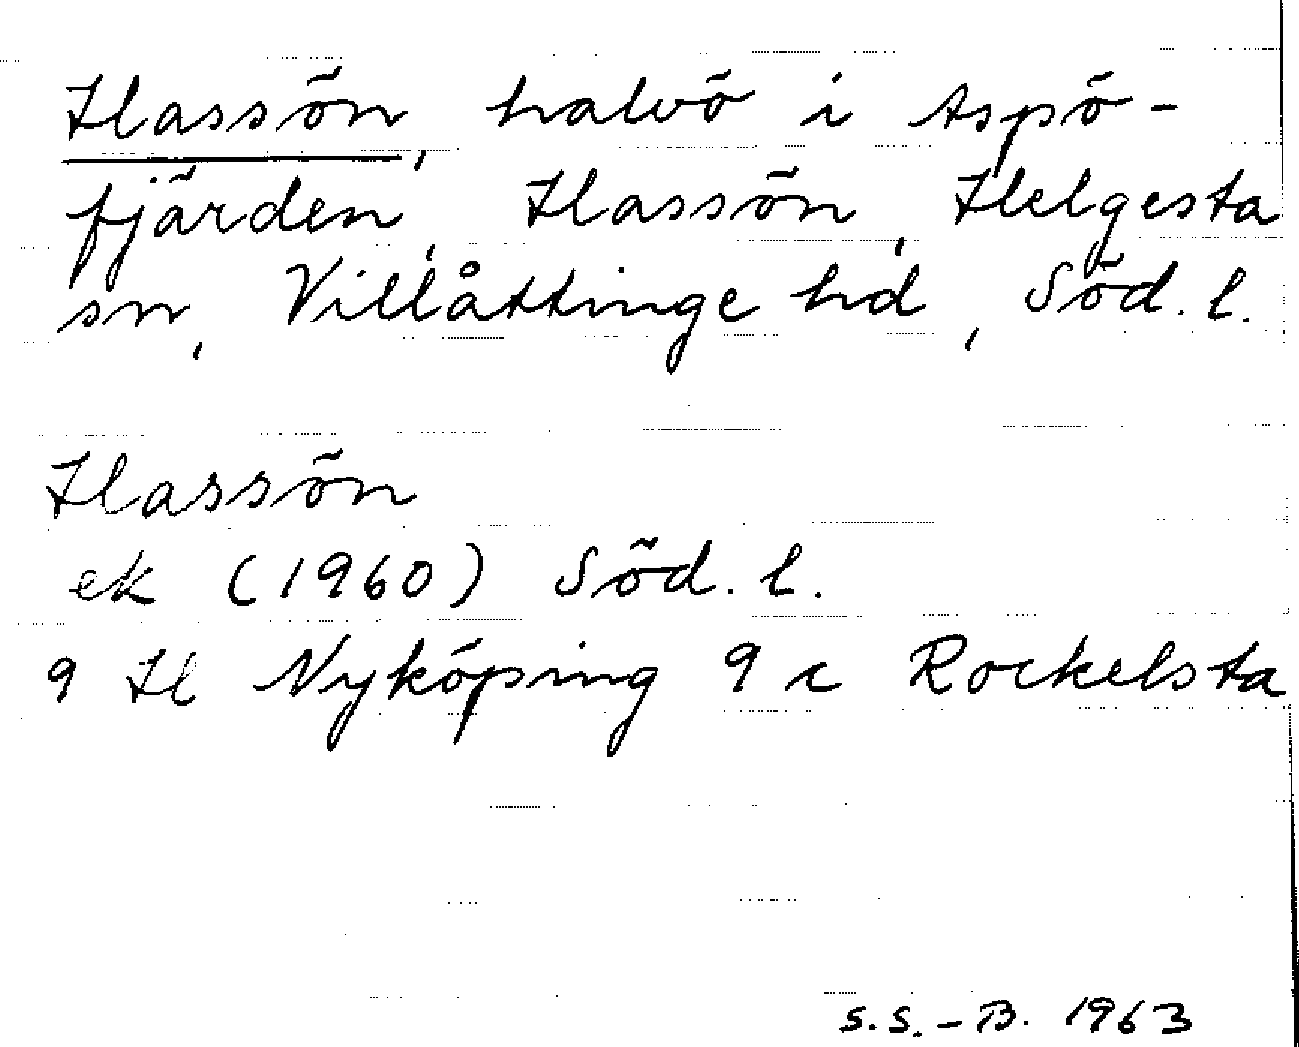 Hassön, halvö i Aspö-
fjärden, Hassön, Helgesta
sn, Villåttinge hd, Söd. l.
Hassön
ek (1960) Söd. l.
9 H Nyköping 9 c Rockelsta
S.S.-B. 1963